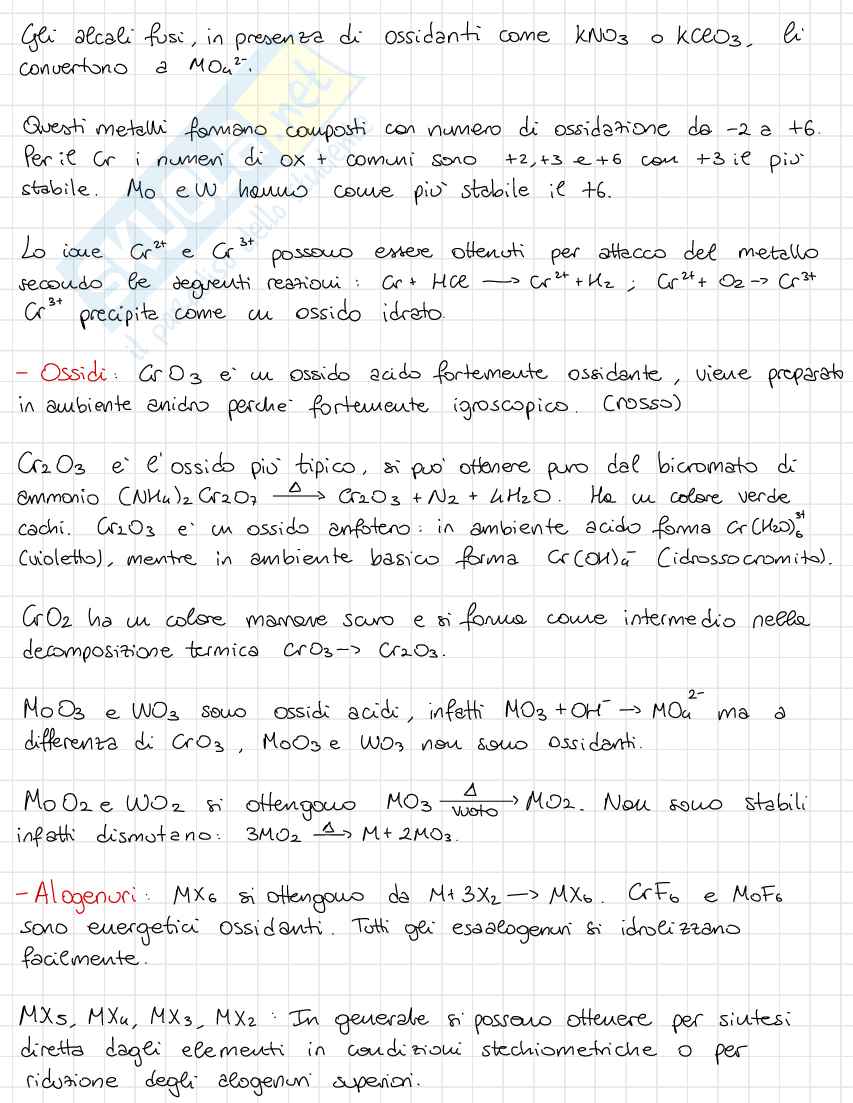 Gli alcali fusi, in presenza di ossidanti come KNO3 o KClO3, li
convertono a MO4²⁻.
Questi metalli formano composti con numero di ossidazione da -2 a +6.
Per il Cr i numeri di ox + comuni sono +2, +3 e +6 con +3 il più
stabile. Mo e W hanno come più stabile il +6.
Lo ione Cr²⁺ e Cr³⁺ possono essere ottenuti per attacco del metallo
secondo le seguenti reazioni: Cr + HCl → Cr²⁺ + H2 ; Cr²⁺ + O2 → Cr³⁺
Cr³⁺ precipita come un ossido idrato.
- Ossidi: CrO3 è un ossido acido fortemente ossidante, viene preparato
in ambiente anidro perché fortemente igroscopico. (rosso)
Cr2O3 è l'ossido più tipico, si può ottenere puro dal bicromato di
ammonio (NH4)2Cr2O7 →Δ Cr2O3 + N2 + 4H2O. Ha un colore verde
cachi. Cr2O3 è un ossido anfotero: in ambiente acido forma Cr(H2O)6³⁺
(violetto), mentre in ambiente basico forma Cr(OH)4⁻ (idrossocromito).
CrO2 ha un colore marrone scuro e si forma come intermedio nella
decomposizione termica CrO3 → Cr2O3.
MoO3 e WO3 sono ossidi acidi, infatti MO3 + OH⁻ → MO4²⁻ ma a
differenza di CrO3, MoO3 e WO3 non sono ossidanti.
MoO2 e WO2 si ottengono MO3 →Δ vuoto MO2. Non sono stabili
infatti dismutano: 3MO2 →Δ M + 2MO3.
- Alogenuri: MX6 si ottengono da M + 3X2 → MX6. CrF6 e MoF6
sono energetici ossidanti. Tutti gli esaalogenuri si idrolizzano
facilmente.
MX5, MX4, MX3, MX2: In generale si possono ottenere per sintesi
diretta dagli elementi in condizioni stechiometriche o per
riduzione degli alogenuri superiori.
SKUOLA.net
il paradiso dello studente